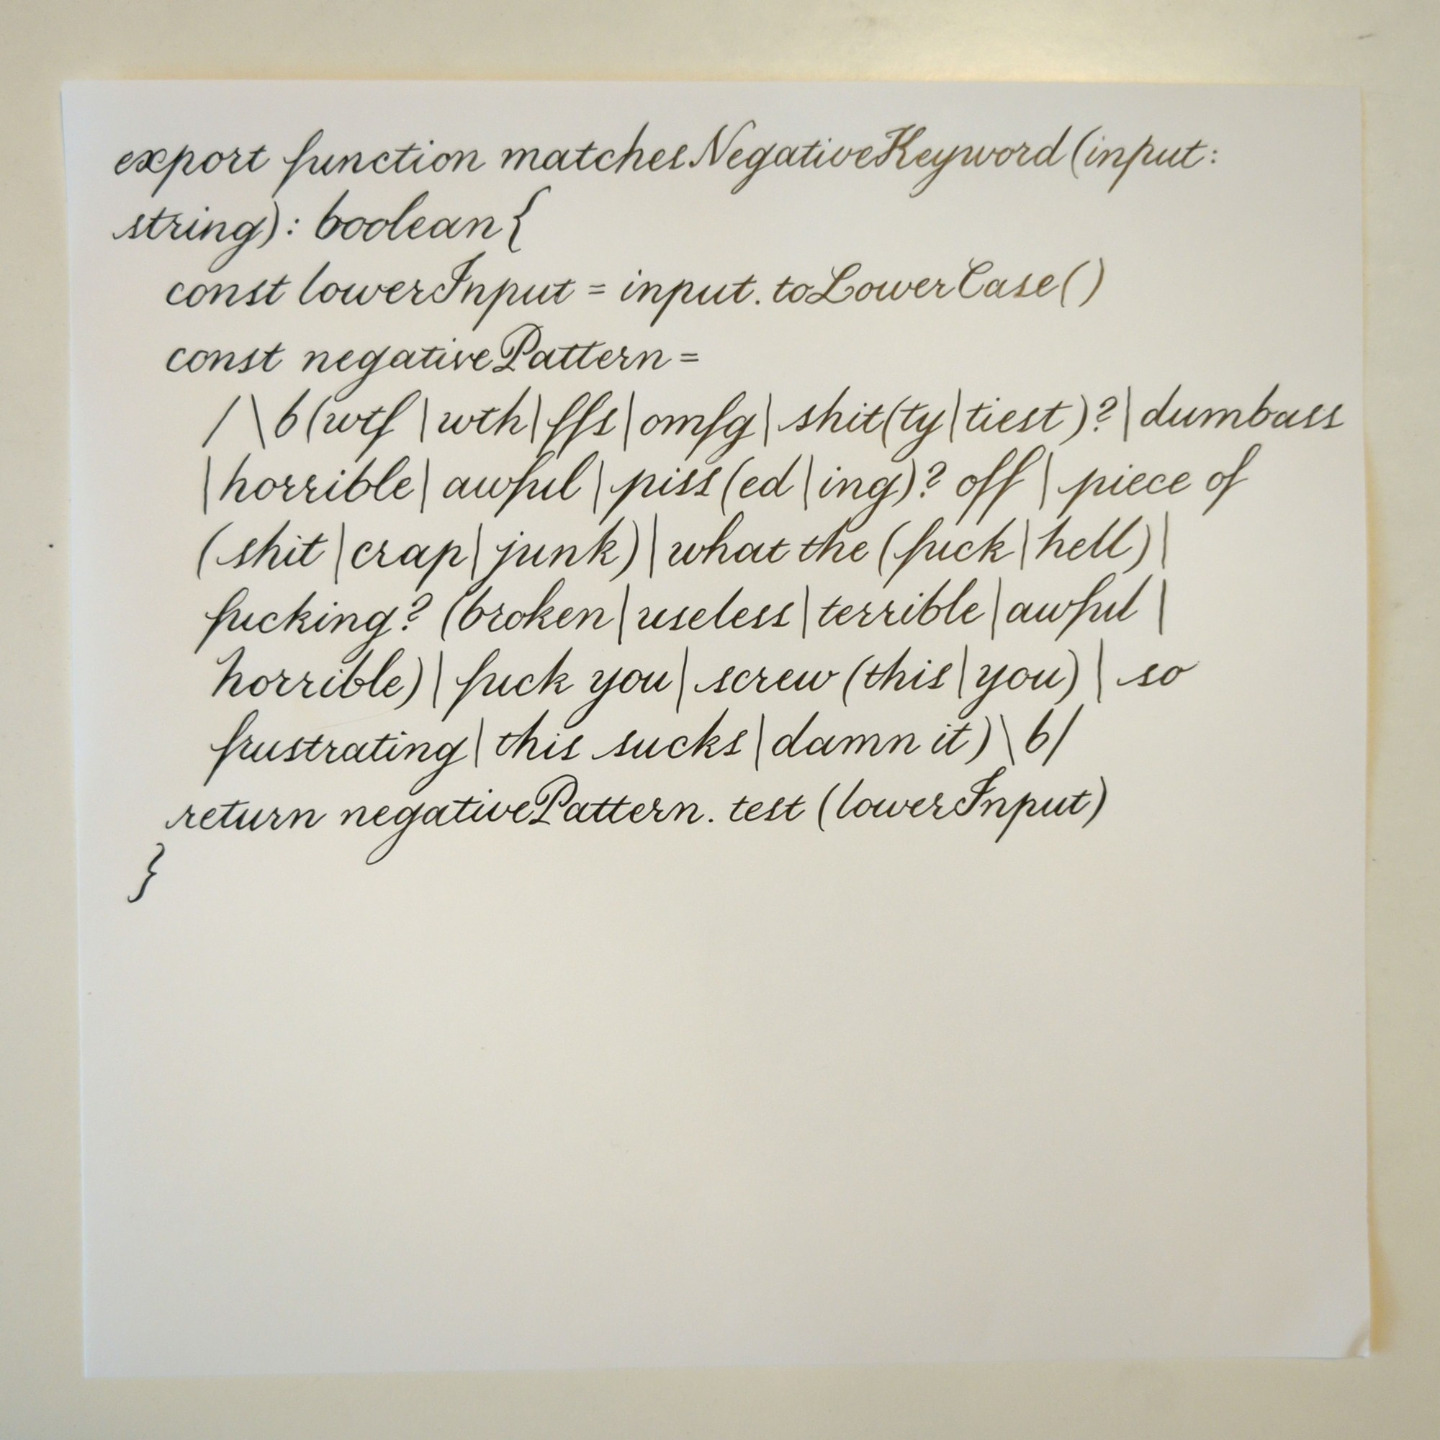 export function matchesNegativeKeyword(input:
string): boolean {
const lowerInput = input.toLowerCase()
const negativePattern =
/\b(wtf|wth|ffs|omfg|shit(ty|tiest)?|dumbass
|horrible|awful|piss(ed|ing)? off|piece of
(shit|crap|junk)|what the (fuck|hell)|
fucking? (broken|useless|terrible|awful|
horrible)|fuck you|screw (this|you)|so
frustrating|this sucks|damn it)\b/
return negativePattern.test(lowerInput)
}